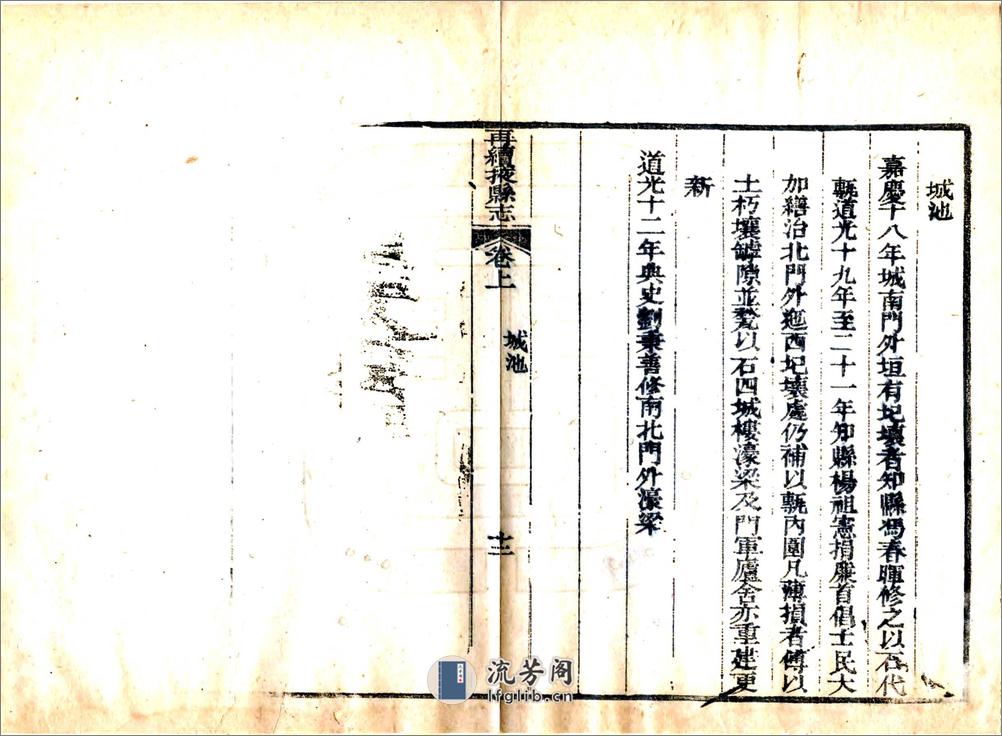 城池
嘉慶十八年城南門外垣有圮壞者知縣馮春暉修之以石代
甎道光十九年至二十一年知縣楊祖憲捐廉首倡士民大
加繕治北門外迤西圮壞處仍補以甎內圍凡薄損者傅以
土朽壤罅隙並甃以石四城樓濠梁及門軍廬舍亦重建更
新
道光十二年典史劉秉善修南北門外濠梁
再續掖縣志
卷上
城池
十三
流芳阁
lfglib.cn